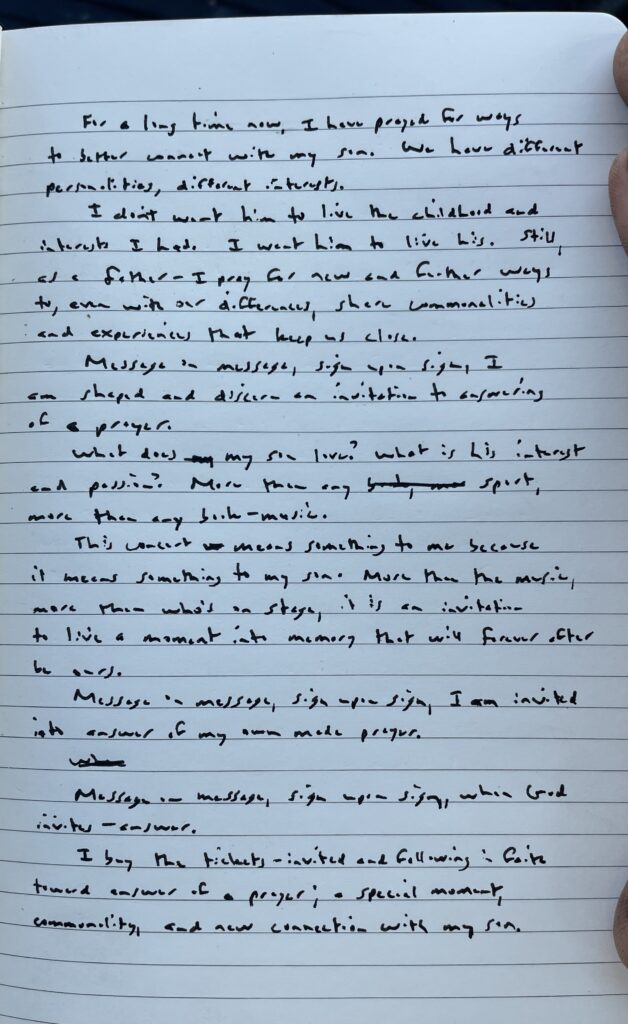 For a long time now, I have prayed for ways
to better connect with my son. We have different
personalities, different interests.
I don't want him to live the childhood and
interests I had. I want him to live his. Still,
as a father - I pray for new and further ways
to, even with our differences, share commonalities
and experiences that keep us close.
Message on message, sign upon sign, I
am shaped and discern an invitation to answering
of a prayer.
What does my son love? What is his interest
and passion? More than any sport,
more than any book - music.
This concert means something to me because
it means something to my son. More than the music,
more than who's on stage, it is an invitation
to live a moment into memory that will forever after
be ours.
Message on message, sign upon sign, I am invited
into answer of my own made prayer.
Message on message, sign upon sign, when God
invites - answer.
I buy the tickets - invited and following in faith
toward answer of a prayer; a special moment,
commonality, and new connection with my son.